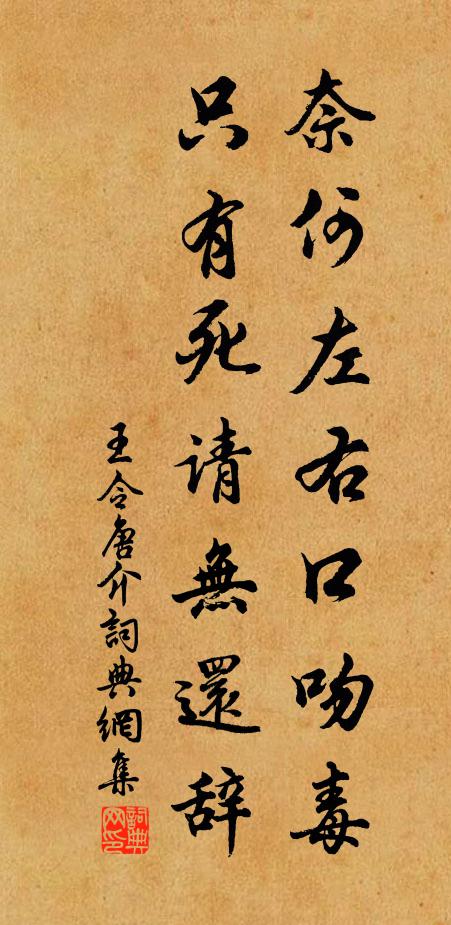 奈何左右口吻毒
只有死请無還辞
王令唐介詞典網集
詞典網印